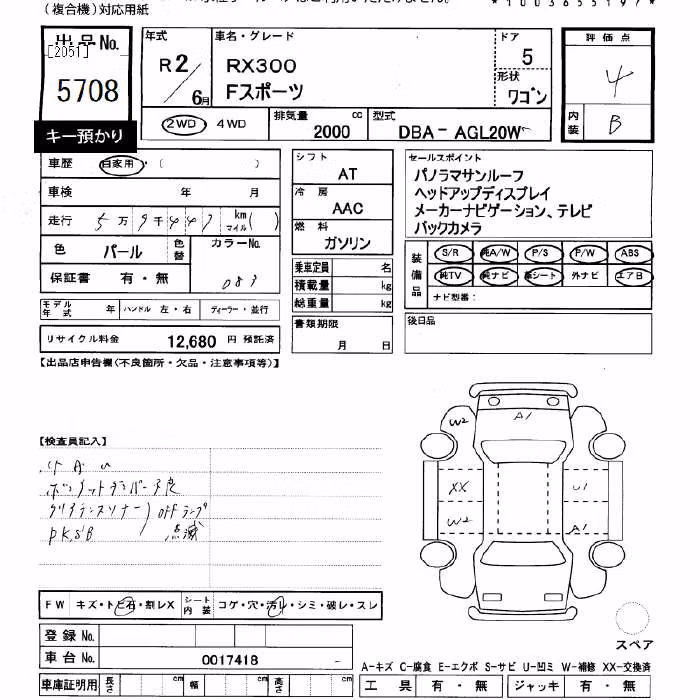 (複合機)対応用紙
出品No.
[2051]
5708
キー預かり
年式
R2/6月
車名・グレード
RX300
Fスポーツ
ドア
5
形状
ワゴン
2WD 4WD
排気量 cc
2000
型式
DBA-AGL20W
評価点
4
内装
B
車歴 自家用・( )
車検 年 月
走行 5万9千447 km マイル( )
色 パール 色替
カラーNo.
083
保証書 有・無
モデル年式 年 ハンドル 左・右 ディーラー・並行
リサイクル料金 12,680 円 預託済
シフト
AT
冷房
AAC
燃料
ガソリン
乗車定員 名
積載量 kg
総重量 kg
書類期限
月 日
セールスポイント
パノラマサンルーフ
ヘッドアップディスプレイ
メーカーナビゲーション、テレビ
バックカメラ
装備品
S/R 純A/W P/S P/W ABS
純TV 純ナビ 革シート 外ナビ エアB
ナビ型番:
後日品
【出品店申告欄(不良箇所・欠品・注意事項等)】
【検査員記入】
ボンネットダンパー不良
クリアランスソナー) OFFランプ
PKSB 点滅
W2 A1
XX U1
W2 A1
スペア
FW キズ・トビ石・割レX シート内装 コゲ・穴・汚レ・シミ・破レ・スレ
登録No.
車台No. 0017418 -
車庫証明用 長さ cm 幅 cm 高さ cm
A-キズ C-腐食 E-エクボ S-サビ U-凹ミ W-補修 XX-交換済
工具 有・無 ジャッキ 有・無